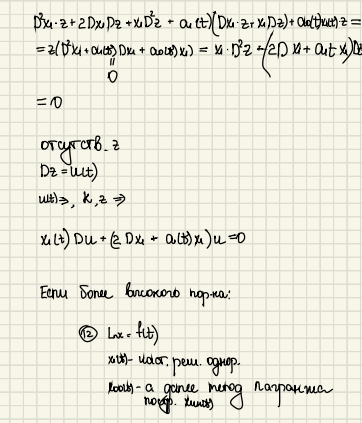 D²x₁·z + 2Dx₁Dz + x₁D²z + a₁(t)(Dx₁·z + x₁Dz) + a₀(t)x₁(t)z =
= z(D²x₁ + a₁(t)Dx₁ + a₀(t)x₁) = x₁·D²z + (2Dx₁ + a₁t x₁)D
॥
0
= 0
отсутств. z
Dz = u(t)
u(t) ⇒, z ⇒
x₁(t)Du + (2Dx₁ + a₁(t)x₁)u = 0
Если более высокого пор-ка:
(12) Lx = f(t)
x₁(t) - част. реш. однор.
- а далее метод Лагранжа